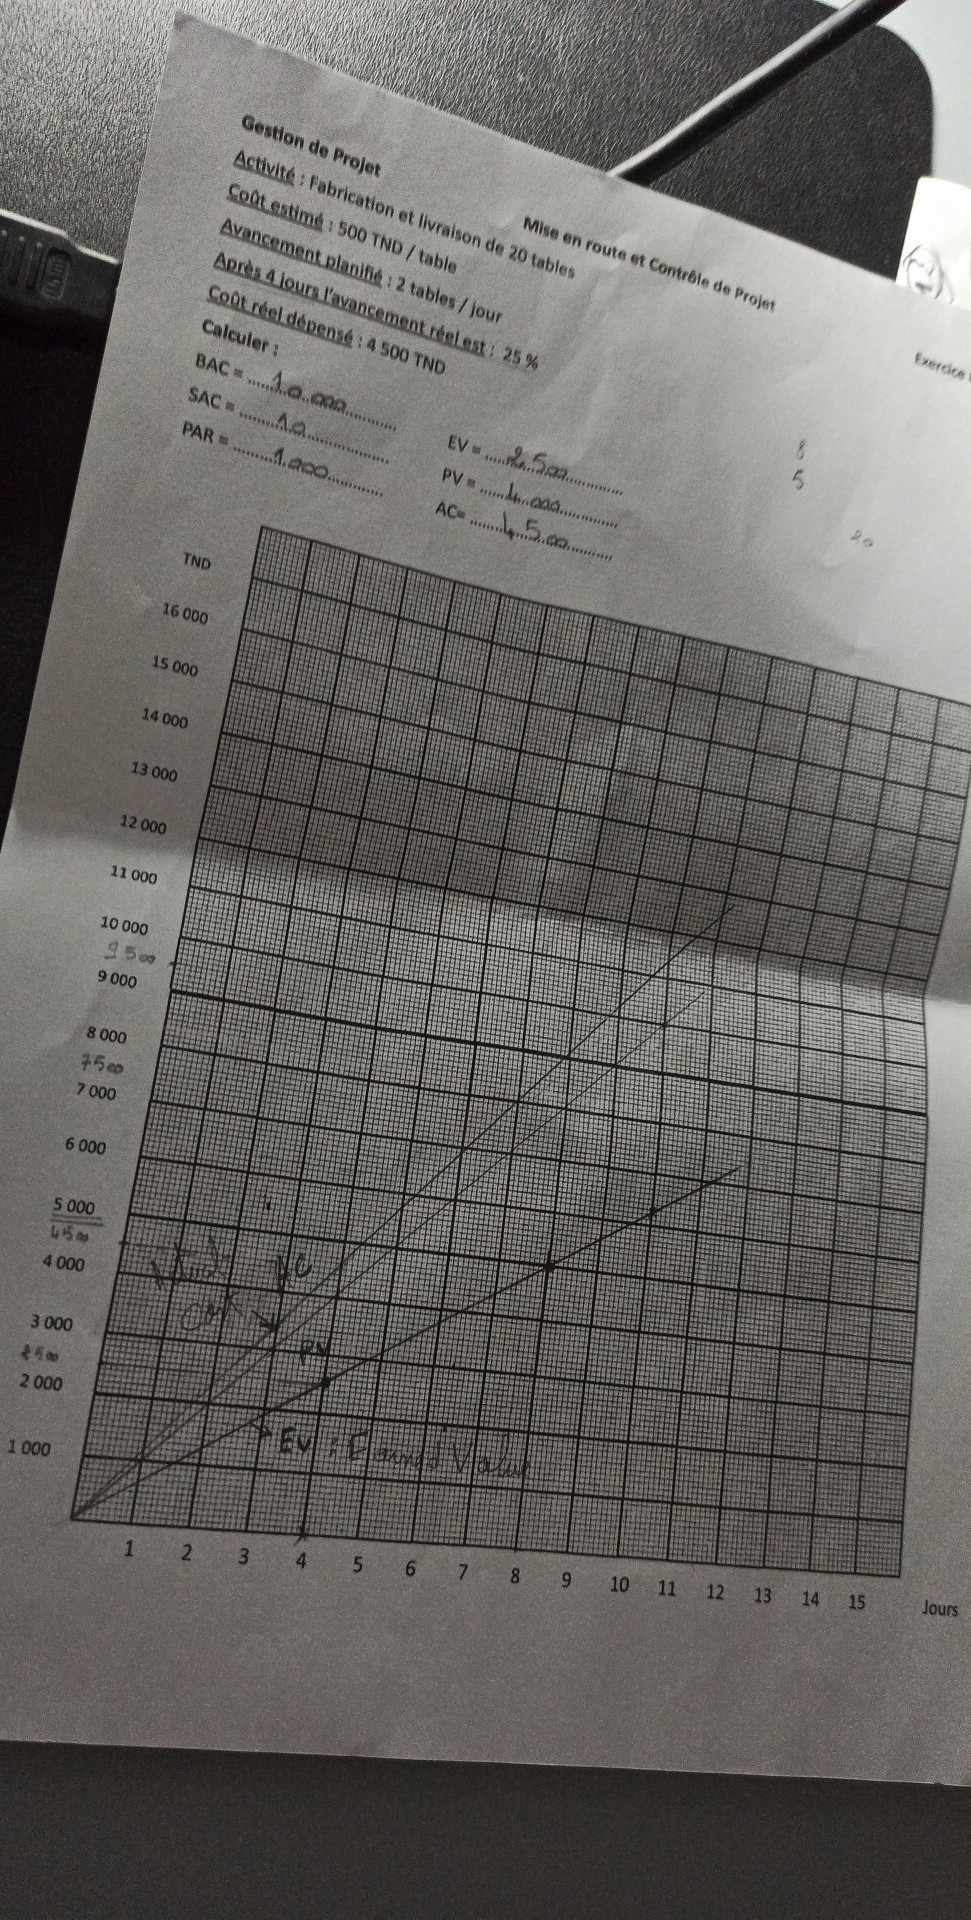 Gestion de Projet
Mise en route et Contrôle de Projet
Exercice
Activité : Fabrication et livraison de 20 tables
Coût estimé : 500 TND / table
Avancement planifié : 2 tables / jour
Après 4 jours l'avancement réel est : 25 %
Coût réel dépensé : 4 500 TND
Calculer :
BAC = ......10.000..............
SAC = .........10..................
PAR = .........1.000..............
EV = .....2.500.............
PV = .....4.000.............
AC= ........4.500...........
8
5
20
TND
16 000
15 000
14 000
13 000
12 000
11 000
10 000
9500
9 000
8 000
7500
7 000
6 000
5 000
4500
4 000
3 000
2500
2 000
1 000
AC
PV
EV : Earned Value
1 2 3 4 5 6 7 8 9 10 11 12 13 14 15
Jours